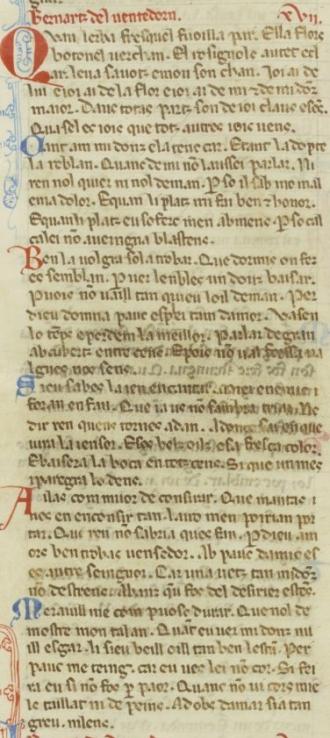 Bernart del uentedorn. xvij.
Qvan lerba fresquel fuoilla par. Ella flors
botonel uerchan. El rosignols autet et cl
ar. leua sauotz emou son chan. Joi ai de
lui eioi ai de la flor eioi ai de mi e de midonz
maior. Daus totas partz son de ioi claus eseis.
Quasel es iois que totz autres iois uens.
Qant am mi donz ela tenc car. Et ant la dopte
la reblan. Quanc de mi no lausei parlar. Ni
ren nol quier ni nol deman. Pero il sab mo mal
ema dolor. E quan li platz mi fai ben et honor.
E quan li platz eu sofere men ab mens. Per so cill
calei no aueingna blastens.
Ben la uolgra sola trobar. Que dormis on fez
es semblan. Per uer lenbles un douz baisar.
Puois no uaill tan quieu loil deman. Per
dieu domna pauc esplei tam damor. Vai sen
lo temps e perdem la meillor. Parlar degram
ab cubertz entre sens. E pois no ual
gues nos gens.
Sieu saubes la ien encantar. Miei enemic i
foran en fan. Que ia us no saubra triar. Ne
dir ren quens tornes adan. Adonc sai eu que
uira la iensor. E sos bels oils e sa fresca color.
E baisera la boca en totz sens. Si que un mes
i paregra lo dens.
Ailas com muor de consirar. Que maintas i
uos en consir tan. lairo men poirian por
tar. Que ren no sabria ques fan. Per dieu am
ors ben trobas uensedor. Ab pauc damics es
es autre seingnor. Car una uetz tan midonz
no destrens. abanz qu fos del desirier estes.
Merauill me com puosc durar. Que nol de
mostre mon talan. Quan eu uei mi donz ni
ill esgar. li sieu beill oill tan ben lestan. Per
pauc me teing. car eu ues lei no cor. Si fei
ra eu si no fos per paor. Quanc no ui cors mie
ls taillatz ni depeins. Ad obs damar sia tan
greu. ni lens.